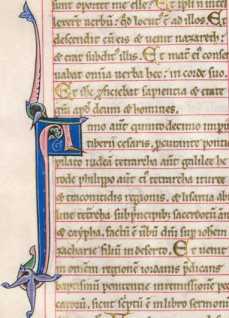 sunt oportet me esse? Et ipsi ñ intell
lexerũt uerbũ: qď locut᾽ ẽ ad illos. Et
descendit cũ eis et uenit nazareth:
et erat subdit᾽ illis. Et mat̃ ei᾽ conse
uabat omĩa uerba hec: in corde suo.
Et ihc ꝓficiebat sapientia et etate
grã apd deum et homines.
Anno aut̃ quintodecimo imꝑii
tiberii cesaris, ꝓcurante pontio
pilato iudeã tetrarcha aut̃ galilee he
rode philippo aut̃ tetrarchaituree
et traconitidis regionis, et lisania abi
line tetrarcha sub principib; sacerdotũ an
et caypha. factũ ẽ ũbũ dñi suꝑ iohem
zacharie filiũ in deserto. Et uenit
in omẽm regionẽ iordanis p̃dicans
baptismũ penitentie in remissionẽ pec
catorũ, sicut scriptũ ẽ in libro sermonũ